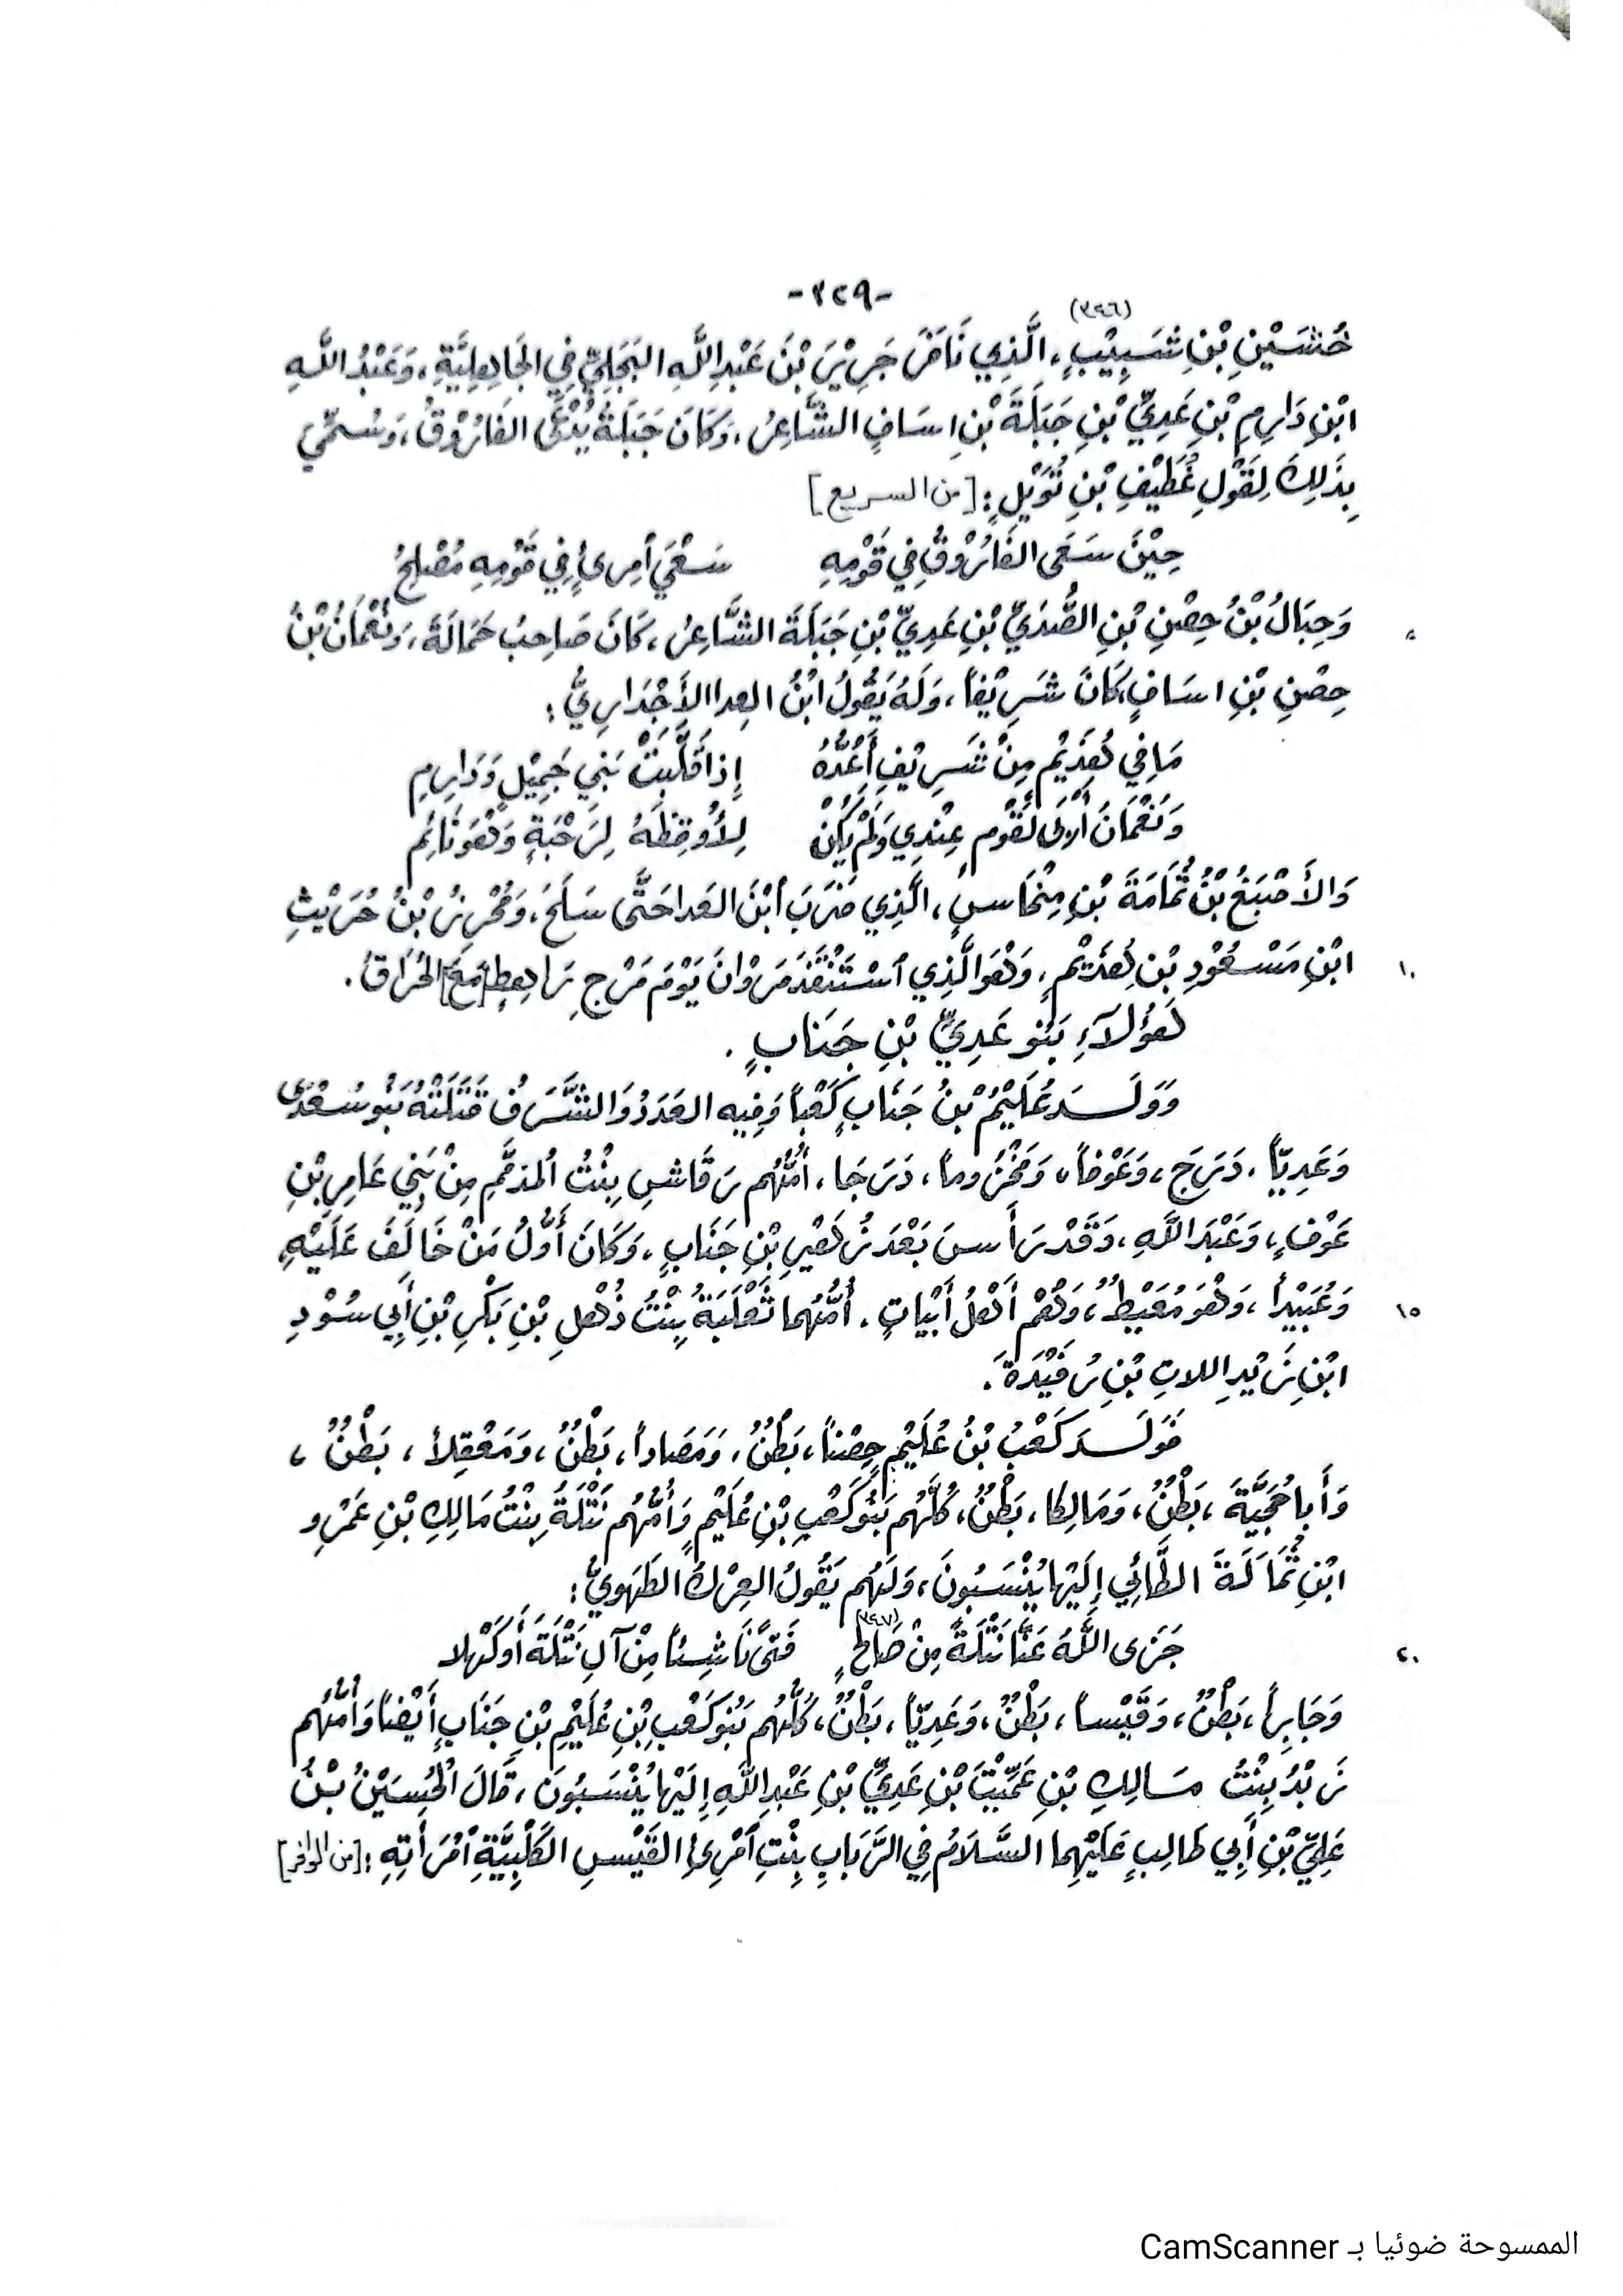 -٣٢٩-
(٣٩٦)
خُشَيْنِ بْنِ شَبِيْبٍ، الَّذِي نَافَرَ جَرِيْرَ بْنَ عَبْدِ اللَّهِ البَجَلِيِّ فِي الجَاهِلِيَّةِ، وَعَبْدُ اللَّهِ
ابْنِ دَارِمِ بْنِ عَدِيِّ بْنِ جَبَلَةَ بْنِ اسَافٍ الشَّاعِرُ، وَكَانَ جَبَلَةُ يُدْعَى الفَارُوْقُ، وَسُمِّيَ
بِذَلِكَ لِقَوْلِ غُطَيْفِ بْنِ تُوَيْلٍ: [من السريع]
حِيْنَ سَعَى الفَارُوْقُ فِي قَوْمِهِ سَعْيَ اْمِرئٍ فِي قَوْمِهِ مُصْلِحُ
٥ وَحِبَالُ بْنُ حِصْنِ بْنِ الصُّدَيِّ بْنِ عَدِيِّ بْنِ جَبَلَةَ الشَّاعِرُ، كَانَ صَاحِبُ حَمَالَةَ، وَنُعْمَانُ بْنُ
حِصْنِ بْنِ اسَافٍ كَانَ شَرِيْفاً، وَلَهُ يَقُولُ ابْنُ العدا الأَجْدَارِيُّ:
مَا فِي هُذَيْمٍ مِنْ شَرِيْفٍ أَعُدُّهُ إِذَا قَلَّبْتُ بَنِي جَمِيْلٍ وَدَارِمِ
وَنُعْمَانَ أَوْلَى لَقَومٍ عِنْدِي وَلَمْ يَكُنْ لِأُوقِظَهُ لِرَحْبَةٍ وَهُوَ نَائِم
وَالأَصْبَغُ بْنُ ثُمَامَةَ بْنِ مِنْحَاسٍ، الَّذِي ضَرَبَ ابْنَ العَدا حَتَّى سَلَحَ، وَمُحْرِزُ بْنُ حُرَيْثِ
١٠ ابْنِ مَسْعُوْدِ بْنِ هُذَيْمٍ، وَهُوَ الَّذِي اسْتَنْقَذَ مَرْوَانَ يَوْمَ مَرْجِ رَاهِطٍ [مَعَ] الحُرَاقُ.
هَؤُلَآءِ بَنُو عَدِيِّ بْنِ جَنَابٍ.
وَوَلَـدَ عُلَيْمُ بْنُ جَنَابٍ كَعْباً وَفِيهِ العَدَدُ وَالشَّرَفُ قَتَلَتْهُ بَنُو سُعْدَى
وَعَدِيّاً، دَرَجَ، وَعَوْفاً، وَمَخْزُوماً، دَرَجَا، أُمُّهُم رَقَاشِ بِنْتُ المذمَّمِ مِنْ بَنِي عَامِرِ بْنِ
عَوْفٍ، وَعَبْدَ اللَّهِ، وَقَدْ رَأَسَ بَعْدَ زُهَيْرِ بْنِ جَنَابٍ، وَكَانَ أَوَّلُ مَنْ خَالَفَ عَلَيْهِ
١٥ وَعُبَيْداً، وَهُوَ مُعَيْطٌ، وَهُمْ أَهْلُ أَبْيَاتٍ، أُمُّهُما ثَعْلَبَةُ بِنْتُ ذُهْلِ بْنِ بَكْرِ بْنِ أَبِي سُوْدِ
ابْنِ زَيْدِ اللاتِ بْنِ رُفَيْدَةَ.
فَوَلَـدَ كَعْبُ بْنُ عُلَيْمٍ حِصْناً، بَطْنٌ، وَمَصَاداً، بَطْنٌ، وَمَعْقِلاً، بَطْنٌ،
وَأَبا حُجَيَّةَ، بَطْنٌ، وَمَالِكا، بَطْنٌ، كُلُّهُم بَنُو كَعْبِ بْنِ عُلَيْمٍ وَأُمُّهُم نَتْلَةُ بِنْتُ مَالِكِ بْنِ عَمْرِو
ابْنِ ثُمَامَةَ الطَّائِي إِلَيْها يُنْسَبُونَ، وَلَهُم يَقُولُ العِرْكُ الطَهَوِيُّ:
(٣٩٧)
٢٠ جَزَى اللَّهُ عَنَّا نَتْلَةً مِنْ صَالحٍ فَتًى نَاشِئاً مِنْ آلِ نَتْلَةَ أَو كَهْلا
وَجَابِراً، بَطْنٌ، وَقَيْساً، بَطْنٌ، وَعَدِيّاً، بَطْنٌ، كُلُّهُم بَنُو كَعْبِ بْنِ عُلَيْمِ بْنِ جَنَابٍ أَيْضاً وَأُمُّهُم
زَبْدُ بِنْتُ مَالِكِ بْنِ عَمِّيْتَ بْنِ عَدِيِّ بْنِ عَبْدِ اللَّهِ إِلَيْها يُنْسَبُونَ، قَالَ الْحُسَيْنُ بْنُ
عَلِيِّ بْنِ أَبِي طَالِبٍ عَلَيْهِما السَّلاَمُ فِي الرَّبَابِ بِنْتِ امْرِئِ القَيْسِ الكَلْبِيَّةِ امْرَأَتِهِ: [من الوافر]
الممسوحة ضوئيا بـ CamScanner